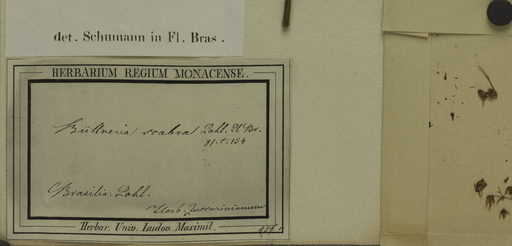 det. Schumann in Fl. Bras.
HERBARIUM REGIUM MONACENSE.
Büttneria scabra Pohl. Pl. Br.
Brasilia. Pohl.
Herb. Zuccarinianum
Herbar. Univ. Ludov. Maximil.